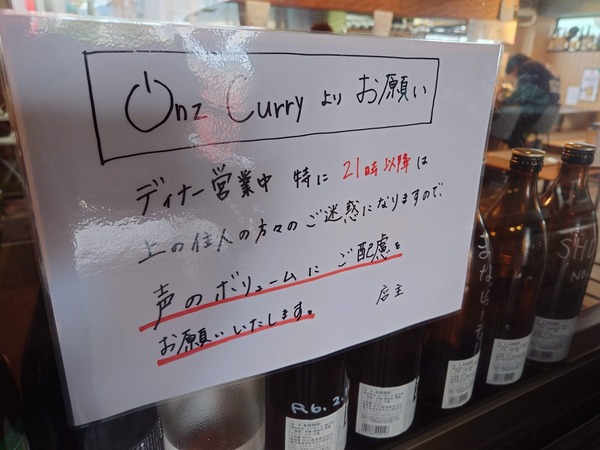 Onz Curry より お願い
ディナー営業中 特に 21時以降は
上の住人の方々のご迷惑になりますので、
声のボリュームに ご配慮を
お願いいたします。
店主
R6.2.